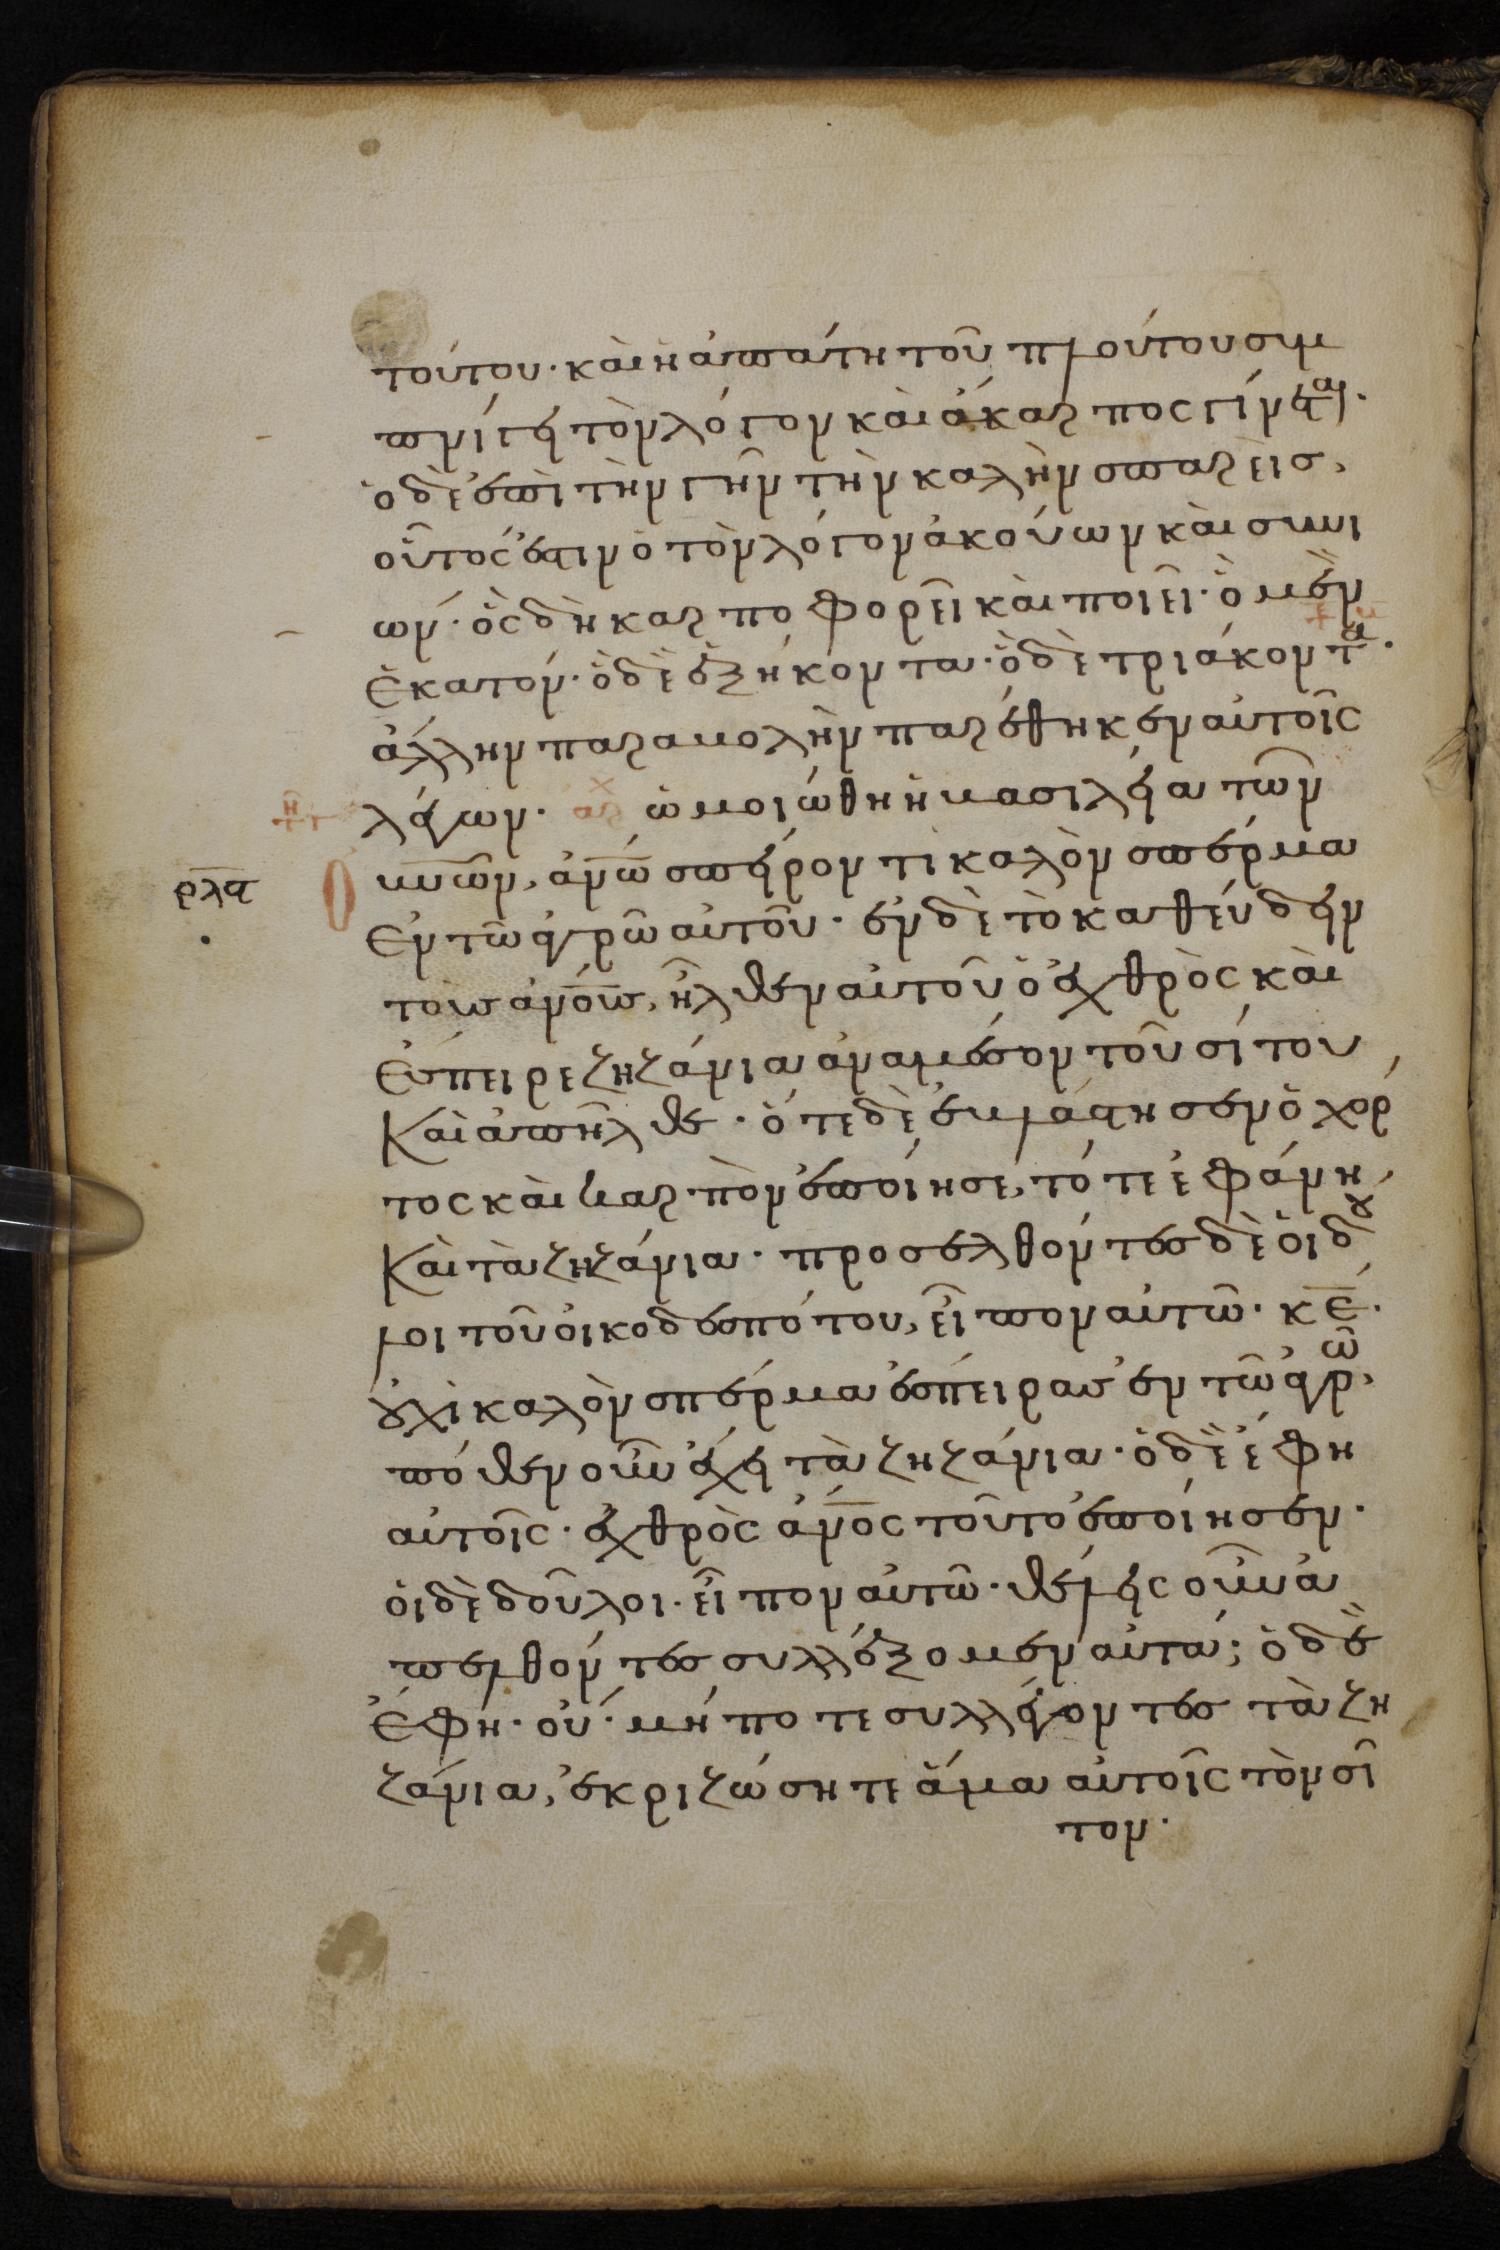 τούτου· καὶ ἡ ἀπάτη τοῦ πλούτου συμ
πνίγει τὸν λόγον καὶ ἄκαρπος γίνεται·
ὁ δὲ ἐπὶ τὴν γῆν τὴν καλὴν σπαρεὶς,
οὗτός ἐστιν ὁ τὸν λόγον ἀκούων καὶ συνι
ών· ὃς δὴ καρποφορεῖ καὶ ποιεῖ· ὁ μὲν
ἑκατόν· ὁ δὲ ἑξήκοντα· ὁ δὲ τριάκοντα·
ἄλλην παραβολὴν παρέθηκεν αὐτοῖς
λέγων· ὡμοιώθη ἡ βασιλεία τῶν
ρλϛ
οὐνῶν, ἀνω σπείροντι καλὸν σπέρμα
ἐν τῶ ἀγρῶ αὐτοῦ· ἐν δὲ τὸ καθεύδειν
τοὺς ἀνους, ἦλθεν αὐτοῦ ὁ ἐχθρὸς καὶ
ἔσπειρε ζηζάνια ἀναμέσον τοῦ σίτου,
καὶ ἀπῆλθε· ὅτε δὲ ἐβλάστησεν ὁ χόρ
τος καὶ καρπὸν ἐποίησε, τότε ἐφάνη,
καὶ τὰ ζηζάνια· προσελθόντες δὲ οἱ δοῦ
λοι τοῦ οἰκοδεσπότου, εἶπον αὐτῶ· κε·
οὐχὶ καλὸν σπέρμα ἔσπειρας ἐν τῶ ἀγρῶ,
πόθεν οὖν ἔχει τὰ ζηζάνια· ὁ δὲ ἔφη
αὐτοῖς· ἐχθρὸς ἀνος τοῦτο ἐποίησεν·
οἱ δὲ δοῦλοι· εἶπον αὐτῶ· θέλεις οὖν ἀ
πελθόντες συλλέξομεν αὐτά; ὁ δὲ
ἔφη· οὔ· μήποτε συλλέγοντες τὰ ζη
ζάνια, ἐκριζώσητε ἅμα αὐτοῖς τὸν σῖ
τον·